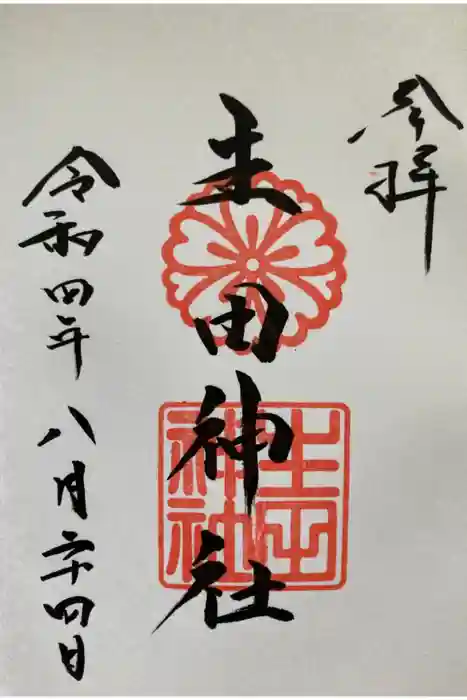 参拝
土田神社
土田神社
令和四年八月二十四日